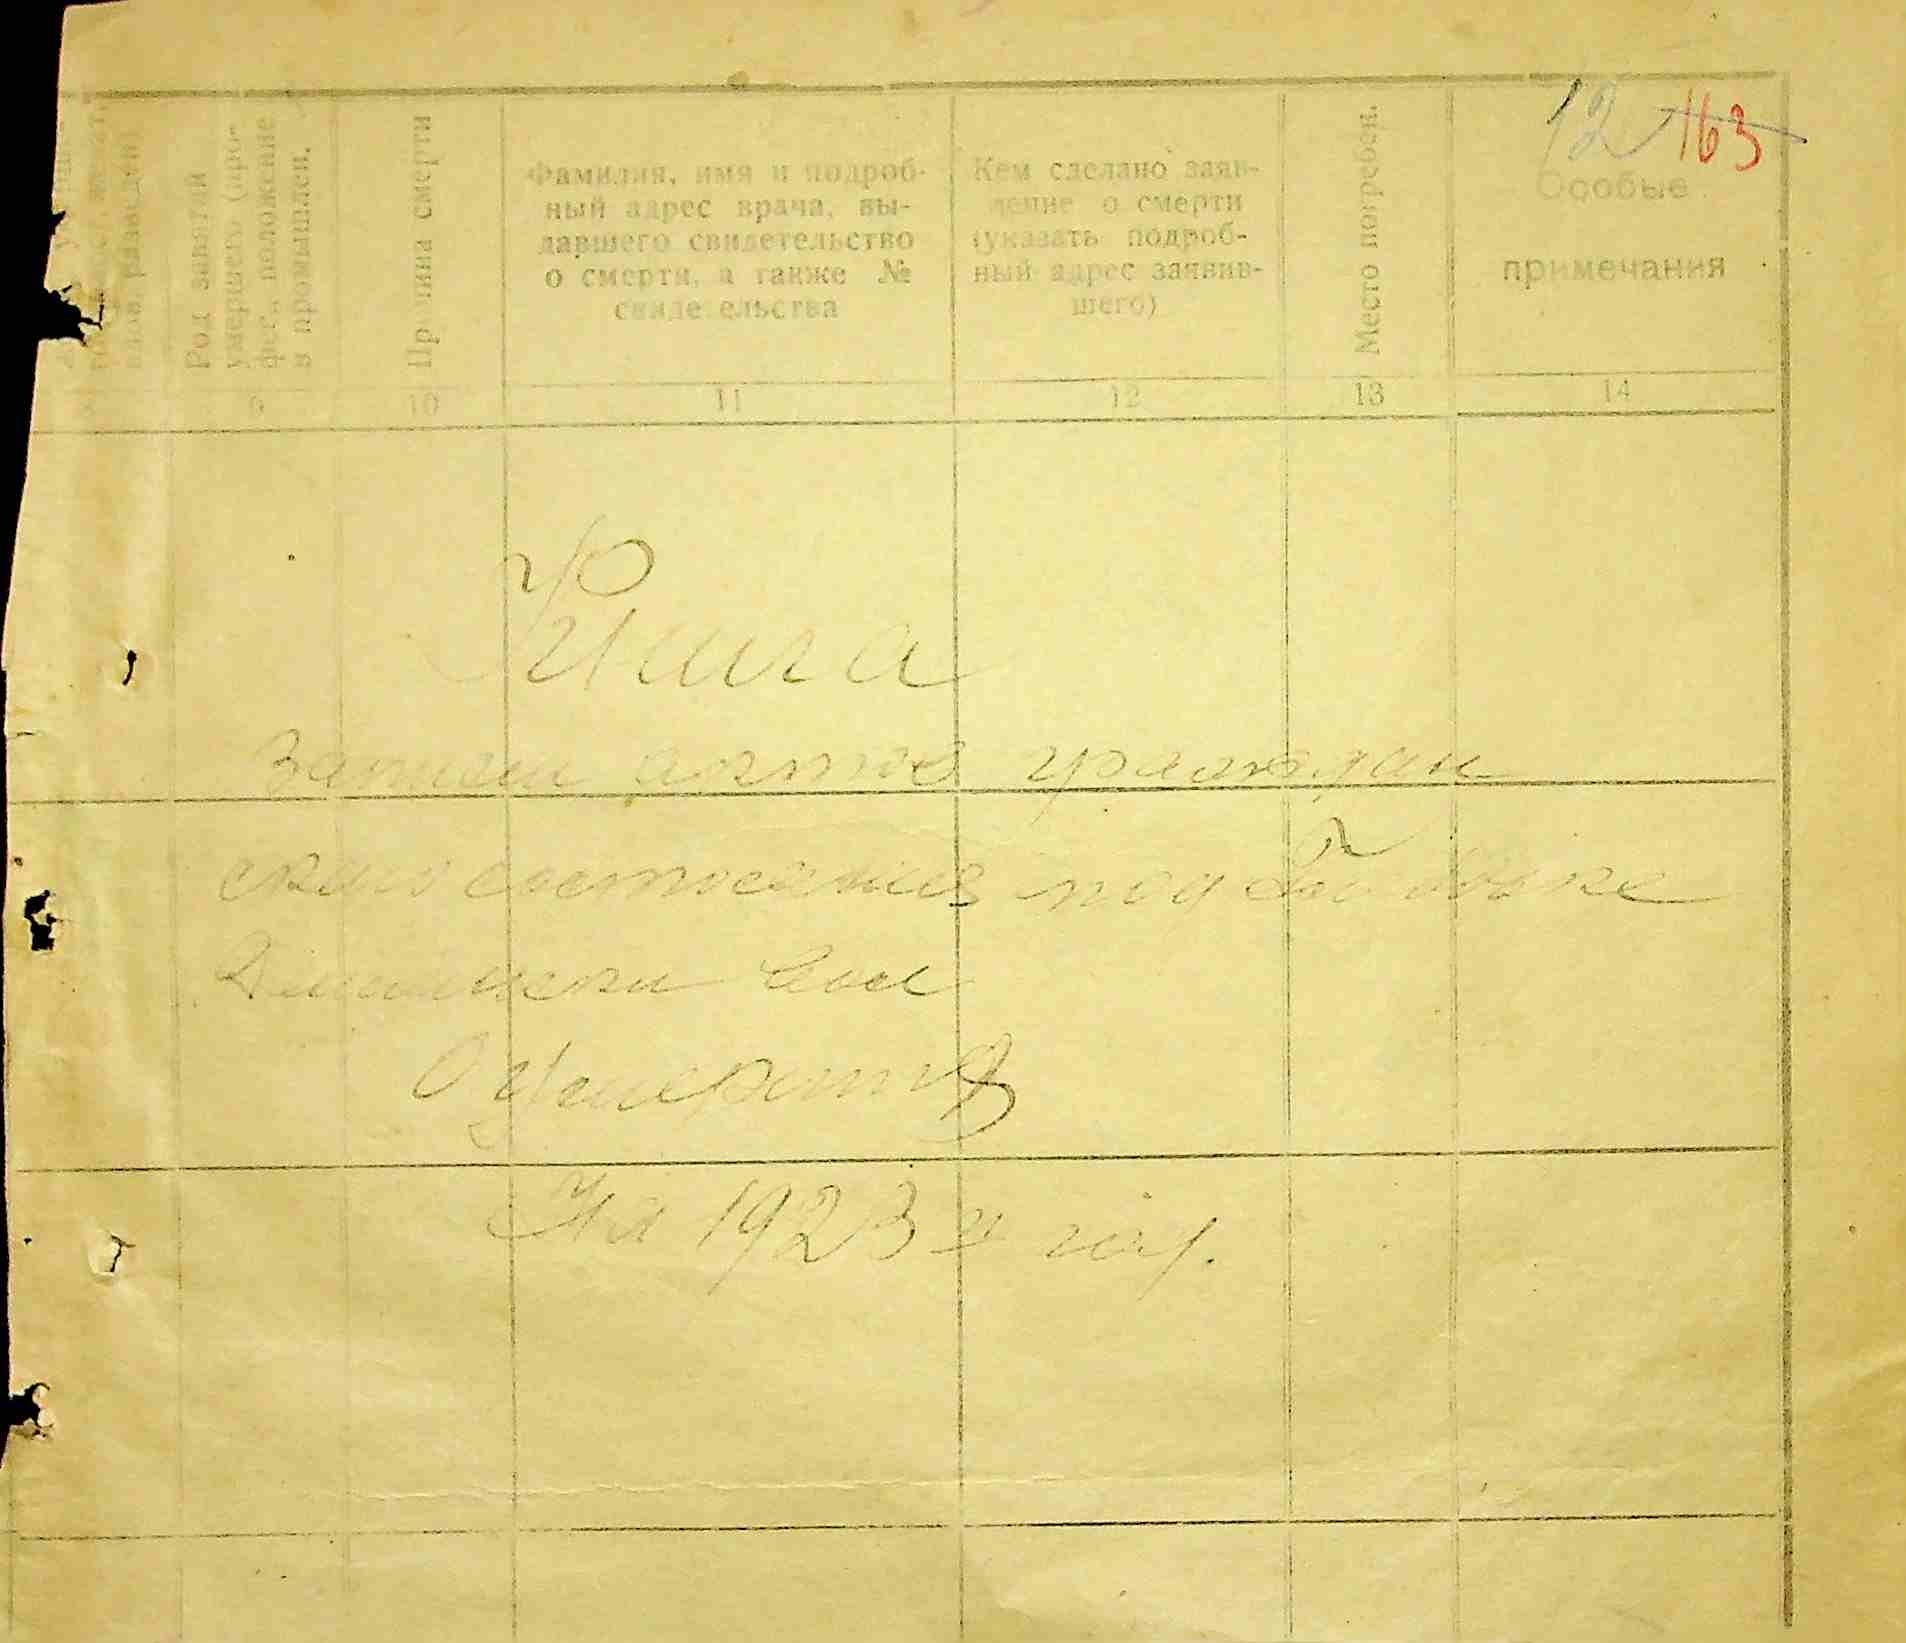 12 163
Род занятий
умершего (про-
фес., положение
в промышлен.
Причина смерти
Фамилия, имя и подроб-
ный адрес врача, вы-
давшего свидетельство
о смерти, а также №
свидетельства
Кем сделано заяв-
ление о смерти
(указать подроб-
ный адрес заявив-
шего)
Место погребен.
Особые
примечания
9 10 11 12 13 14
Книга
Записи актов граждан
ского состояния
О умерших
На 1923 й год.